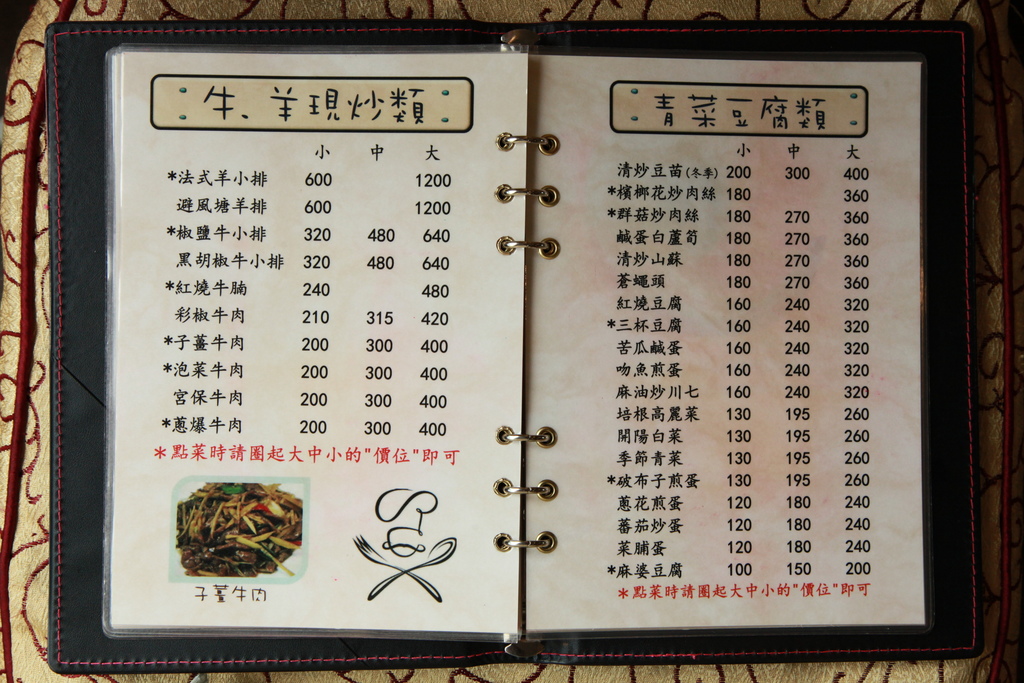 牛、羊現炒類
小 中 大
*法式羊小排 600 1200
避風塘羊排 600 1200
*椒鹽牛小排 320 480 640
黑胡椒牛小排 320 480 640
*紅燒牛腩 240 480
彩椒牛肉 210 315 420
*子薑牛肉 200 300 400
*泡菜牛肉 200 300 400
宮保牛肉 200 300 400
*蔥爆牛肉 200 300 400
*點菜時請圈起大中小的"價位"即可
子薑牛肉
青菜豆腐類
小 中 大
清炒豆苗(冬季) 200 300 400
*檳榔花炒肉絲 180 360
*群菇炒肉絲 180 270 360
鹹蛋白蘆筍 180 270 360
清炒山蘇 180 270 360
蒼蠅頭 180 270 360
紅燒豆腐 160 240 320
*三杯豆腐 160 240 320
苦瓜鹹蛋 160 240 320
吻魚煎蛋 160 240 320
麻油炒川七 160 240 320
培根高麗菜 130 195 260
開陽白菜 130 195 260
季節青菜 130 195 260
*破布子煎蛋 130 195 260
蔥花煎蛋 120 180 240
蕃茄炒蛋 120 180 240
菜脯蛋 120 180 240
*麻婆豆腐 100 150 200
*點菜時請圈起大中小的"價位"即可